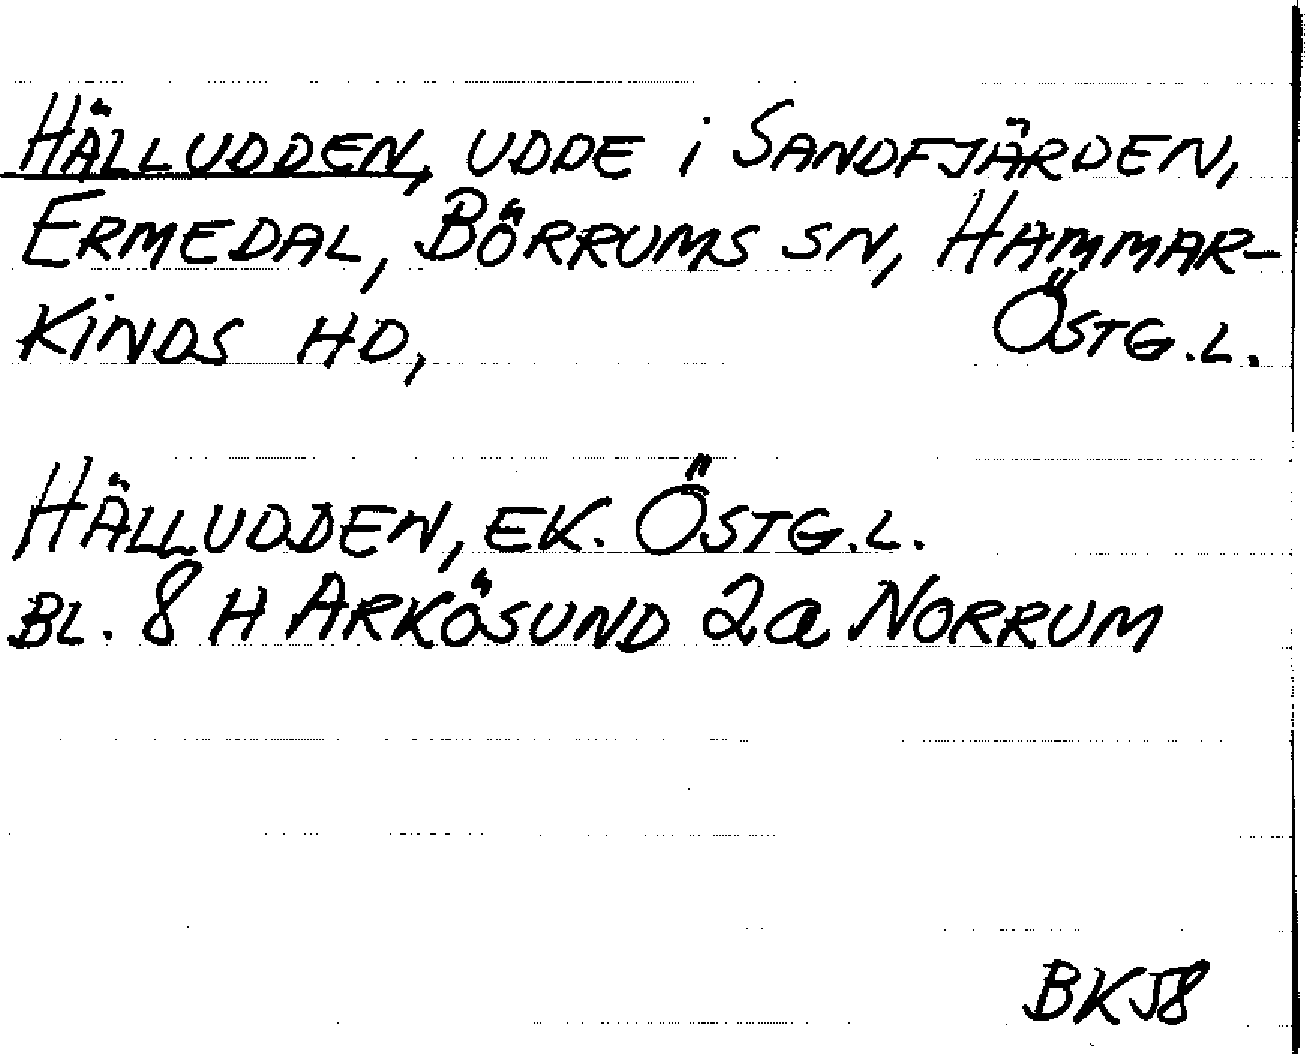 HÄLLUDDEN, UDDE i SANDFJÄRDEN,
ERMEDAL, BÖRRUMS SN, HAMMAR-
KINDS HD, ÖSTG.L.
HÄLLUDDEN, EK. ÖSTG.L.
BL. 8 H ARKÖSUND 2a NORRUM
BKJ8